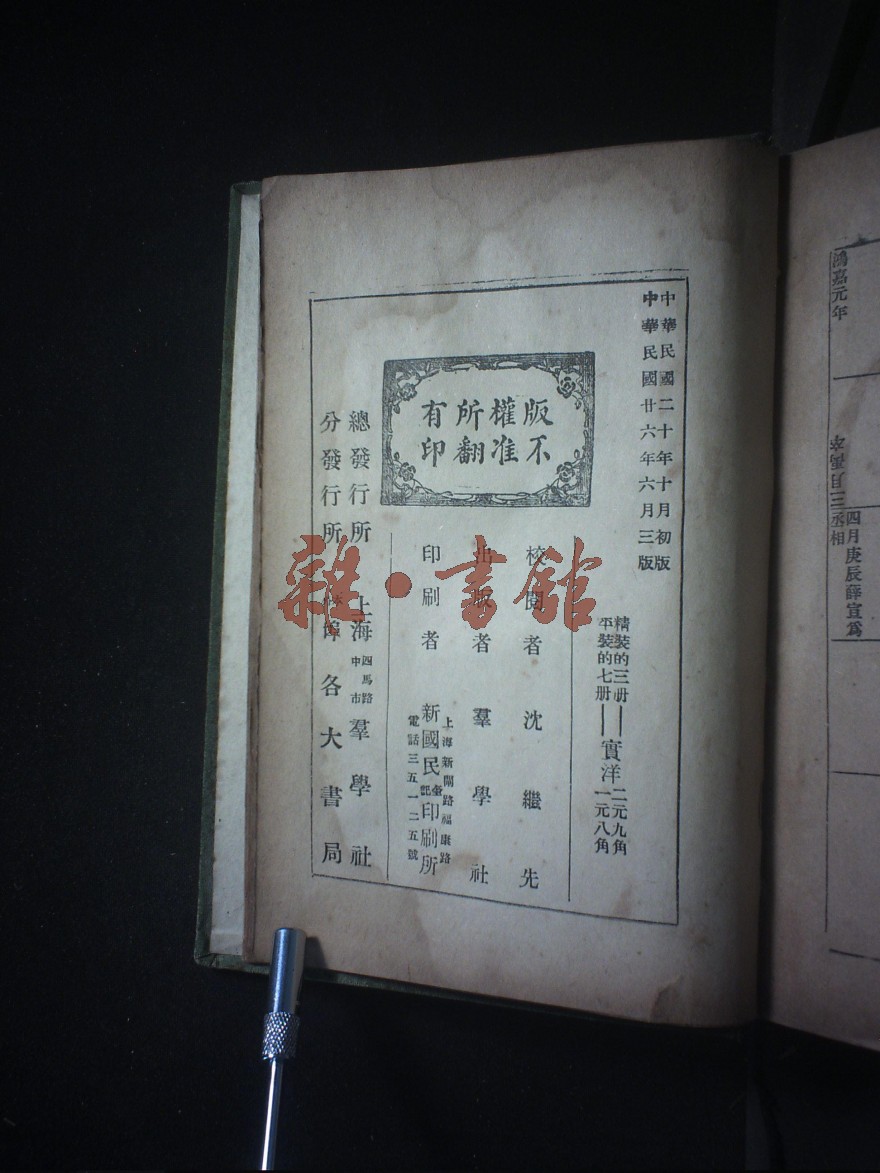 中華民國二十年十月初版
中華民國廿六年六月三版
精裝的三册——實洋二元九角
平裝的七册——實洋一元八角
版權所有
不准翻印
校閱者 沈繼先
出版者 羣學社
上海新閘路福康路
印刷者 新國民印刷所
電話三五一二五號
總發行所 上海四馬路中市羣學社
分發行所 埠各大書局
雜·書館
鴻嘉元年
四月庚辰薛宣爲
丞相